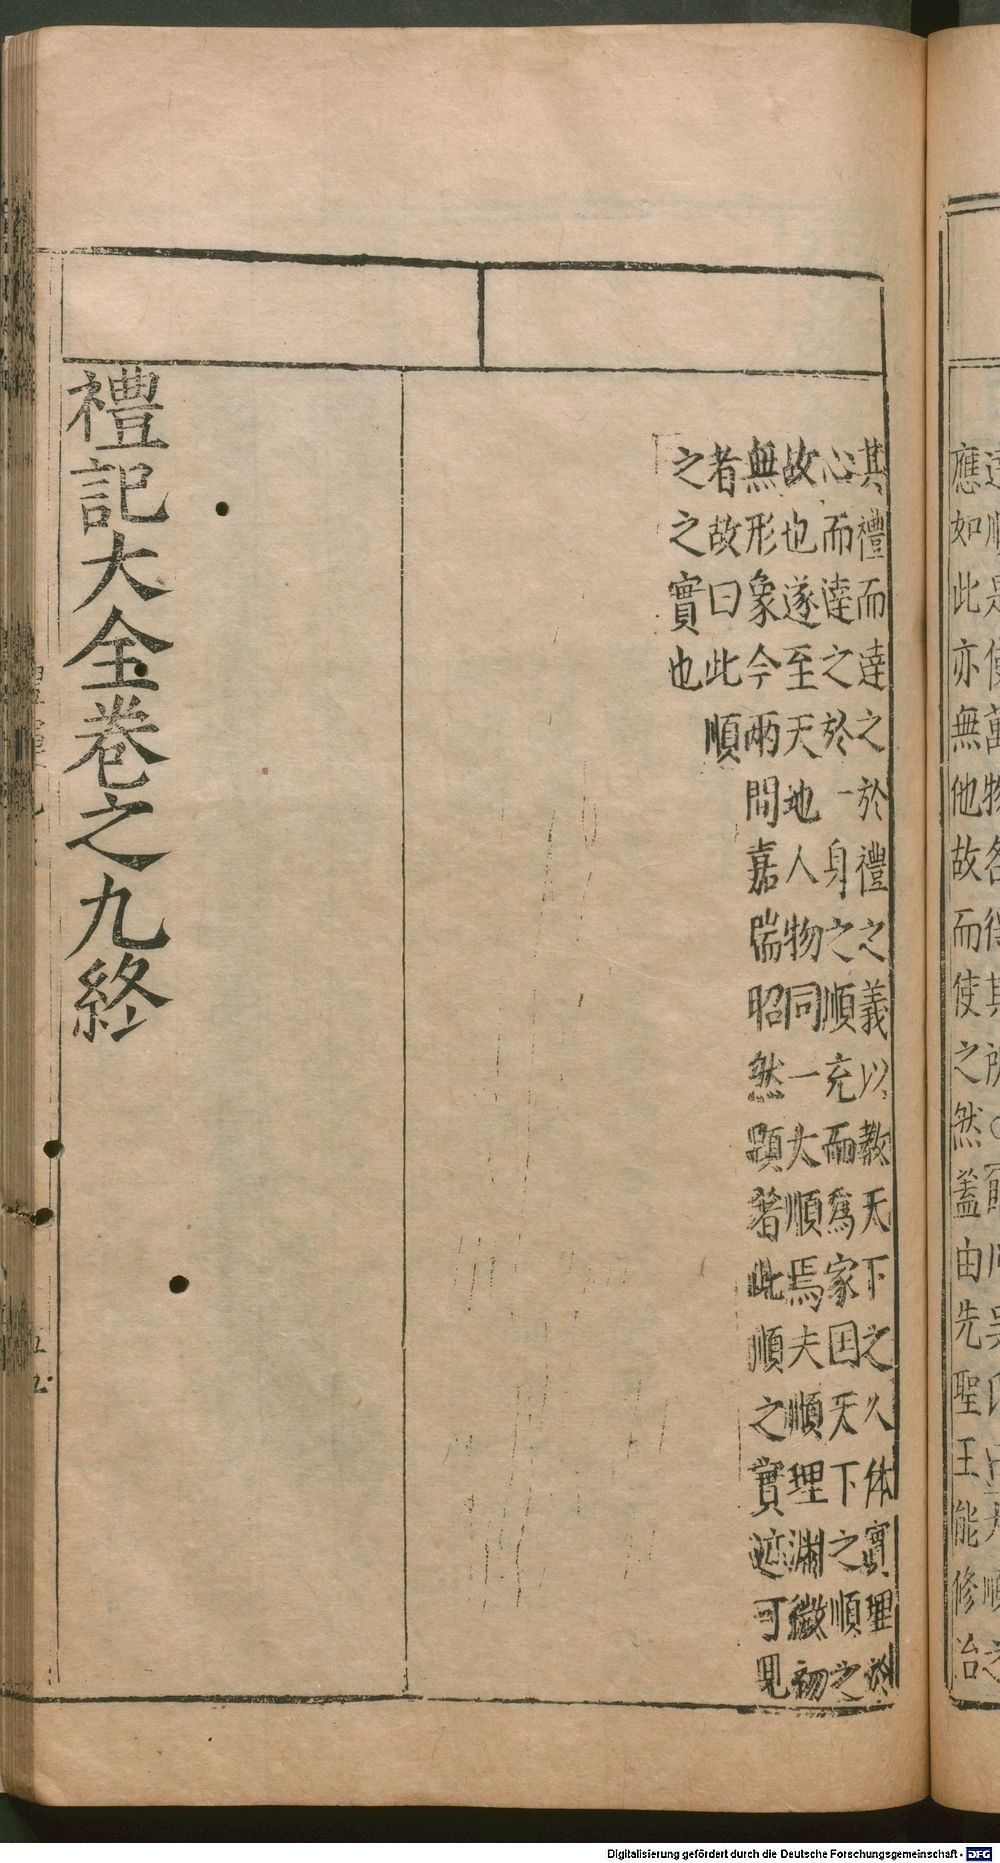 應如此亦無他故而使之然蓋由先聖王能修治
其禮而達之於禮之義以教天下之久体實理於
心而達之於一身之順充而爲家国天下之順之
故也遂至天地人物同一大順焉夫順理淵微初
無形象今兩間嘉瑞昭然顕著此順之實迹可見
者故曰此順
之之實也
禮記大全卷之九終
Digitalisierung gefördert durch die Deutsche Forschungsgemeinschaft - DFG